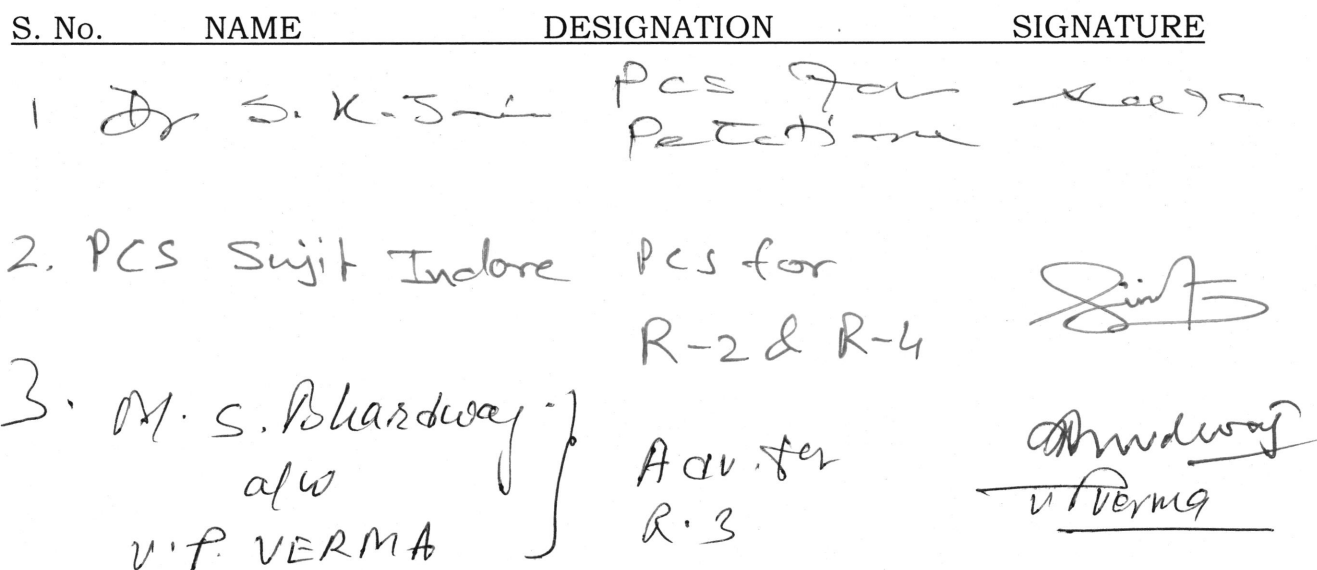 S. No. NAME DESIGNATION SIGNATURE
1 Dr S. K. Jain PCS for
Petitioner
2. PCS Sujit Indore PCS for
R-2 & R-4
3. M. S. Bhardwaj Adv. for
a/w R.3
V. P. VERMA V P Verma